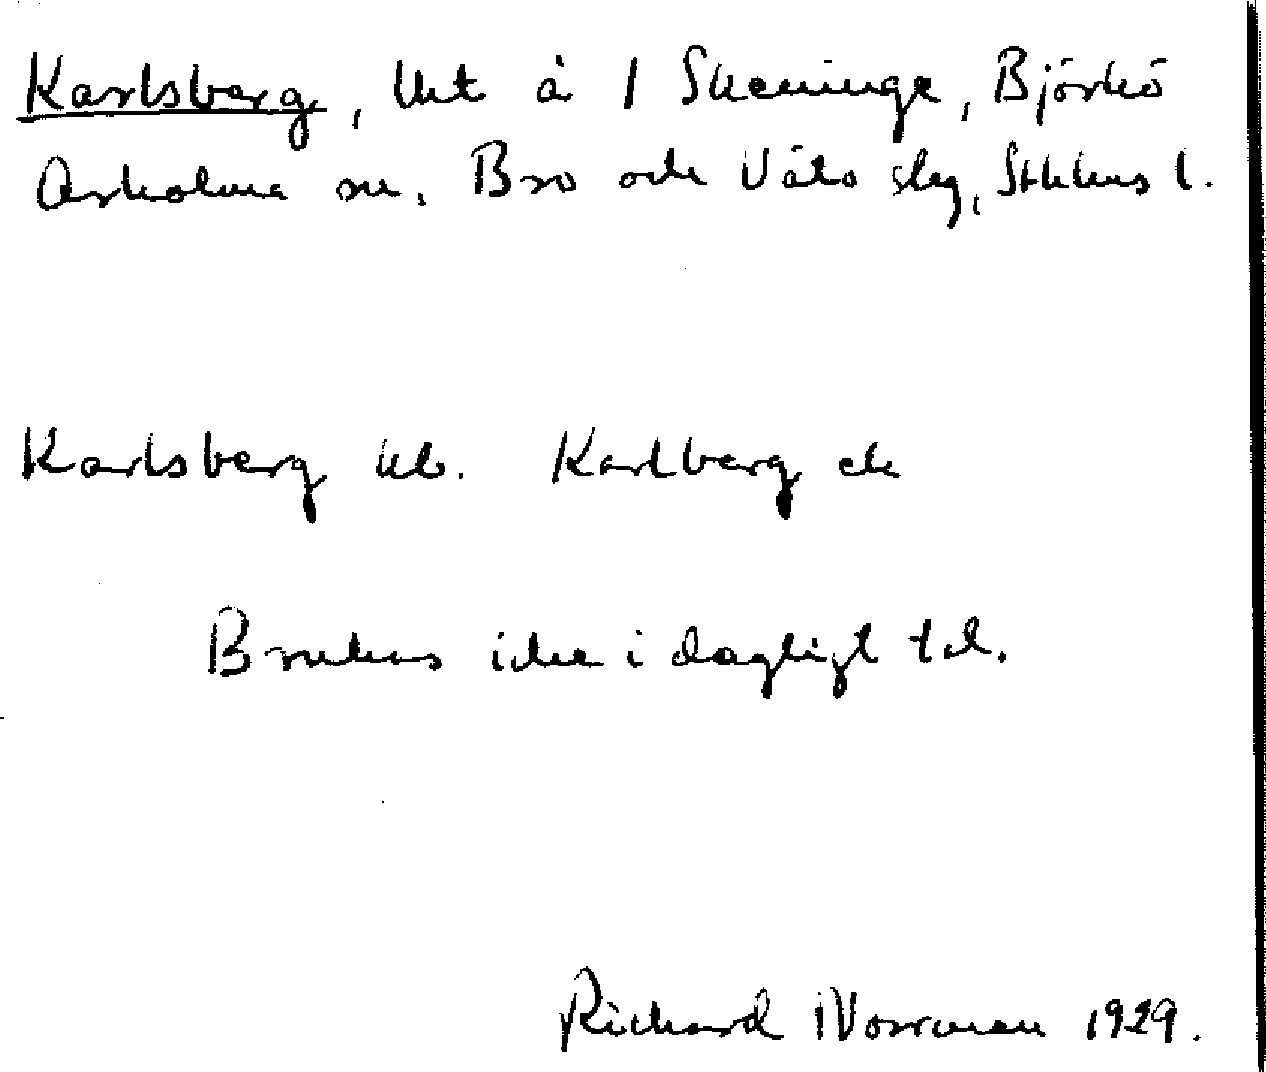 Karlsberg, lht å 1 Skeninge, Björkö
Arholma sn. Bro och Vätö slg, Sthlms l.
Karlsberg kb. Karlberg ek
Brukas icke i dagligt tal.
Richard Norrman 1929.